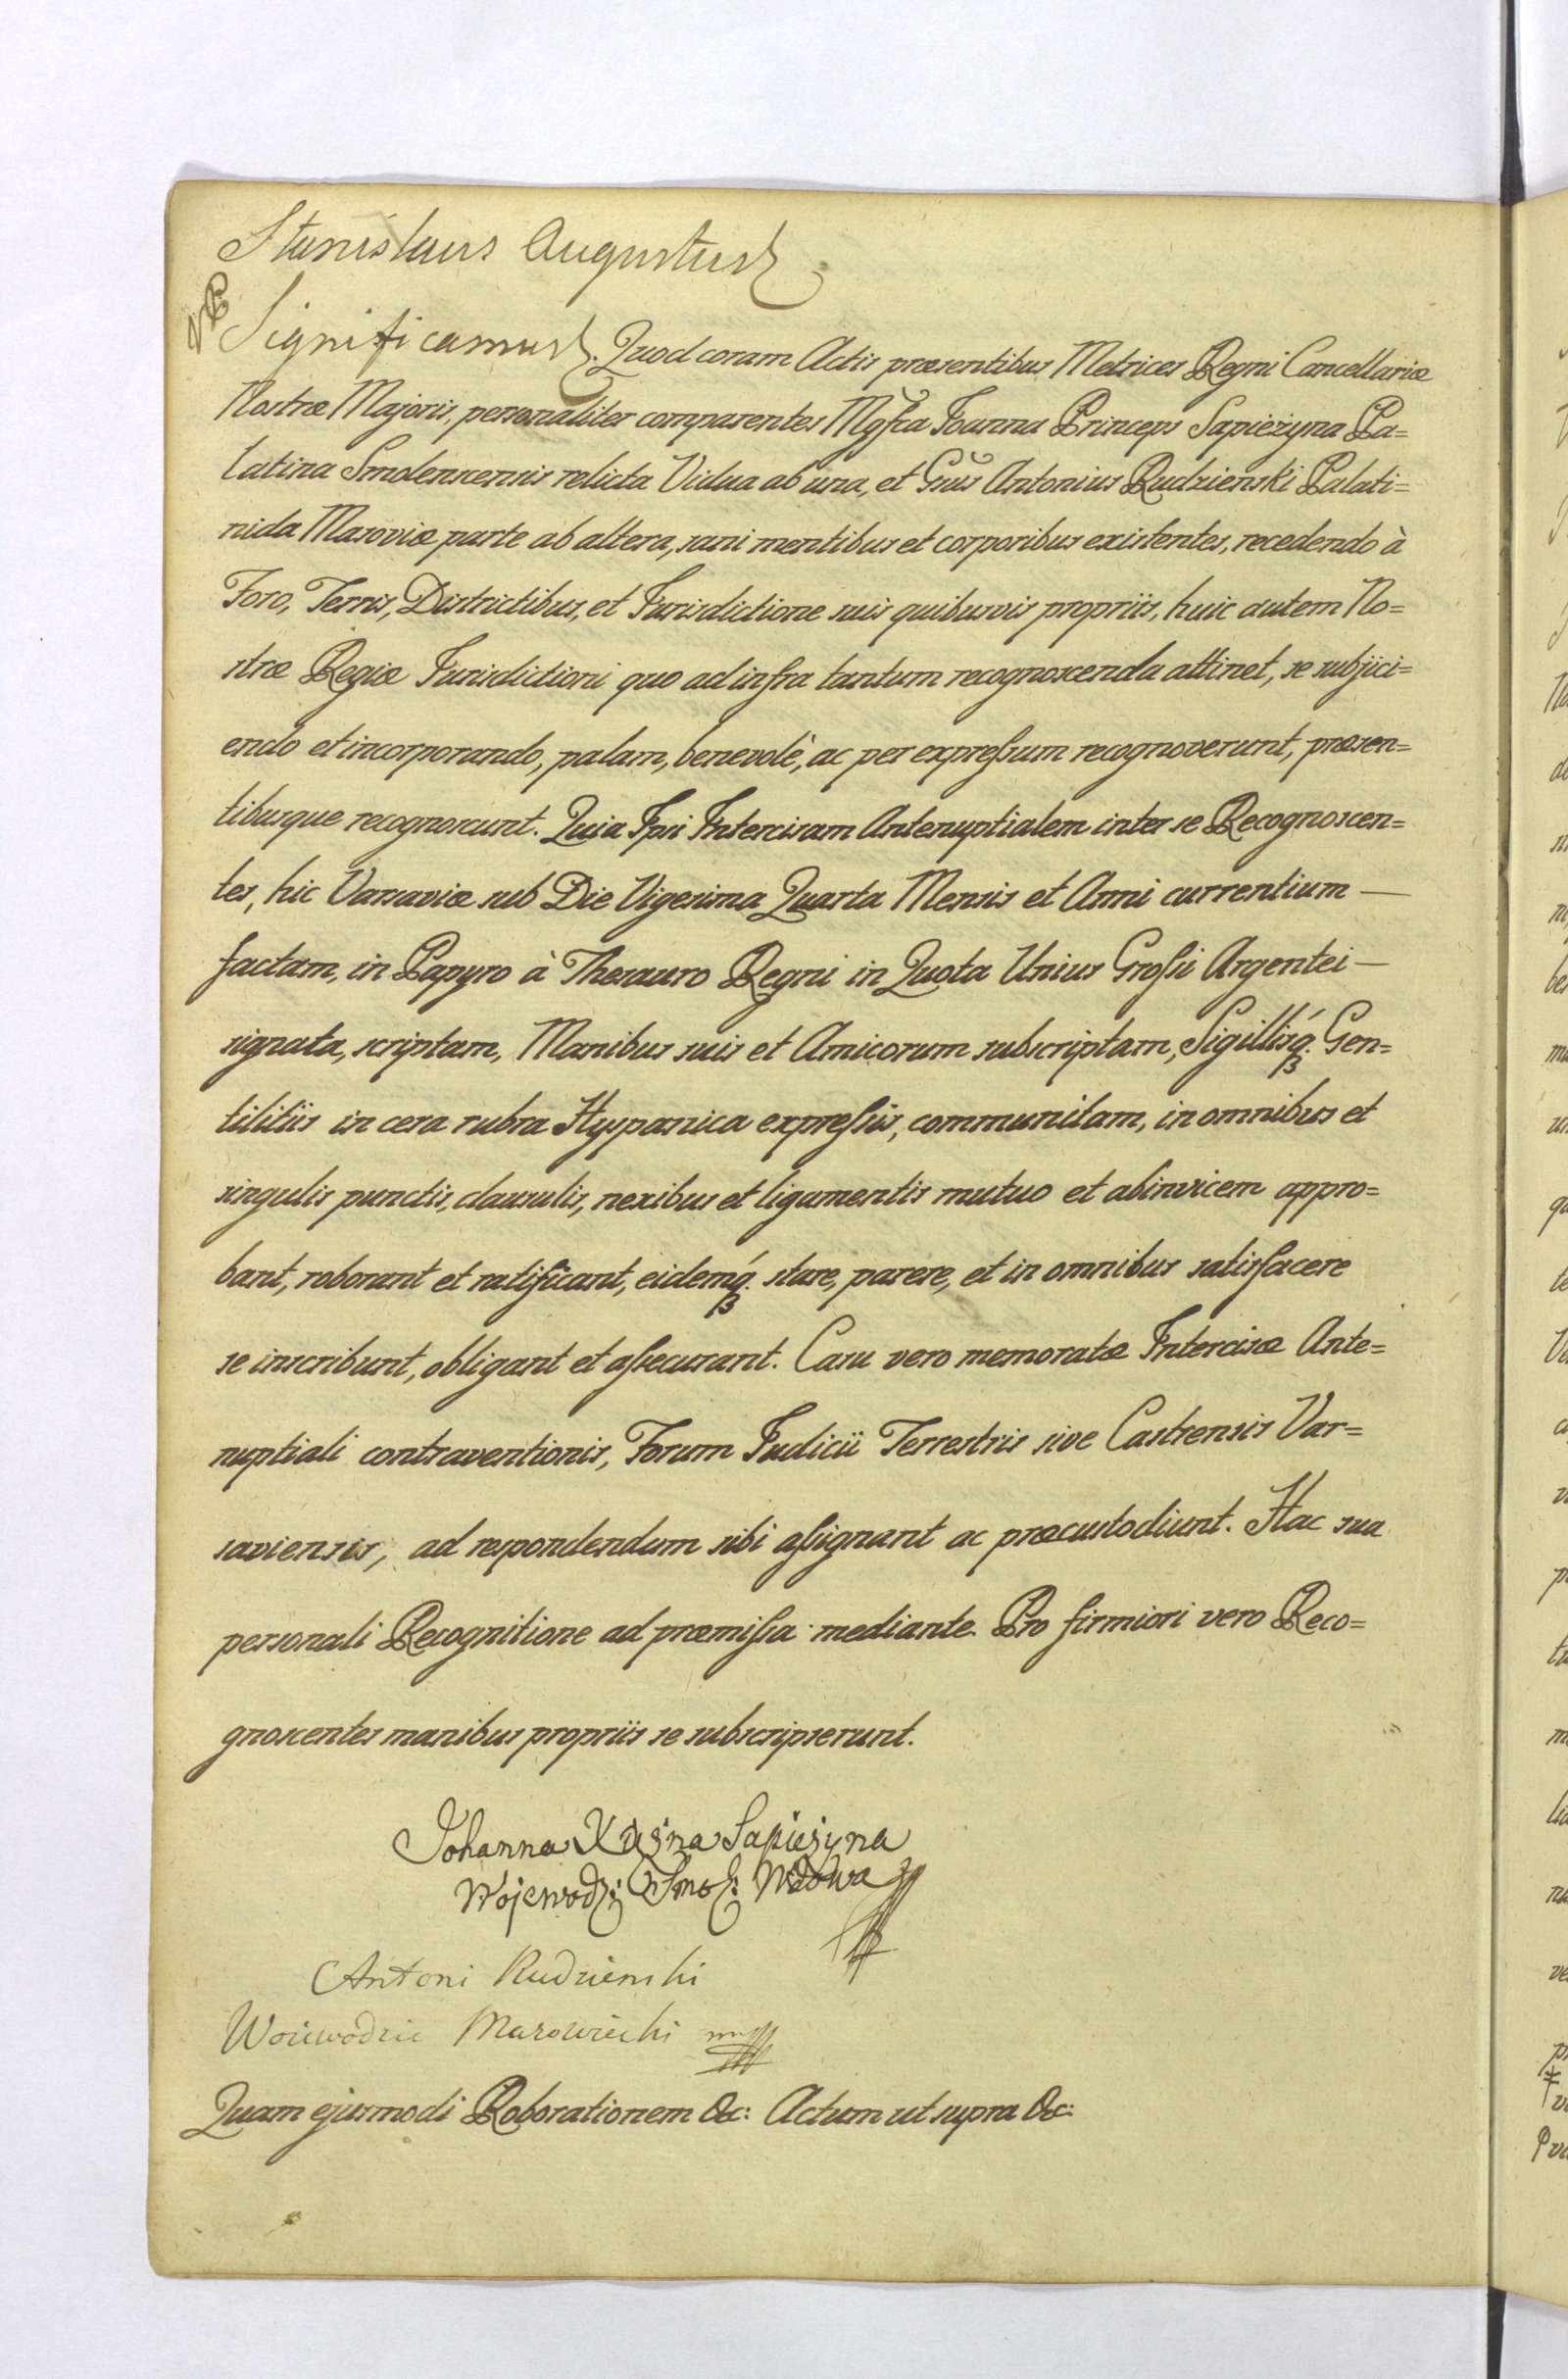 Stanislaus Augustus
Significamus. Quod coram Actis præsentibus Metrices Regni Cancellariæ
Nostræ Majoris, personaliter comparentes Mgfca Ioanna Princeps Sapieżyna Pa=
latina Smolenscensis relicta Vidua ab una, et Grūs Antonius Rudzienski Palati=
nida Masoviæ parte ab altera, sani mentibus et corporibus existentes, recedendo à
Foro, Terris, Districtibus, et Iurisdictione suis quibusvis propriis, huic autem No=
stræ Regiæ Iurisdictioni quo ad infra tantum recognoscenda attinet, se subjici=
endo et incorporando, palam, benevolè, ac per expreſsum recognoverunt, præsen=
tibusque recognoscunt. Quia Ipsi Intercisam Antenuptialem inter se Recognoscen=
tes, hic Varsaviæ sub Die Vigesima Quarta Mensis et Anni currentium —
factam, in Papyro à Thesauro Regni in Quota Unius Groſsi Argentei —
signata, scriptam, Manibus suis et Amicorum subscriptam, Sigillisq́. Gen=
tilitiis in cera rubra Hyspanica expreſsis, communitam, in omnibus et
singulis punctis, clausulis, nexibus et ligamentis mutuo et abinvicem appro=
bant, roborant et ratificant, eidemq́. stare, parere, et in omnibus satisfacere
se inscribunt, obligant et aſsecurant. Casu vero memoratæ Intercisæ Ante=
nuptiali contraventionis, Forum Iudicii Terrestris sive Castrensis Var=
saviensis, ad respondendum sibi aſsignant ac præcustodiunt. Hac sua
personali Recognitione ad præmiſsa mediante. Pro firmiori vero Reco=
gnoscentes manibus propriis se subscripserunt.
Johanna Xiężna Sapieżyna
Wojewodz: Smol: Wdowa
Antoni Rudzienski
Woiewodzic Mazowiecki mp
Quam ejusmodi Roborationem &c: Actum ut supra &c: